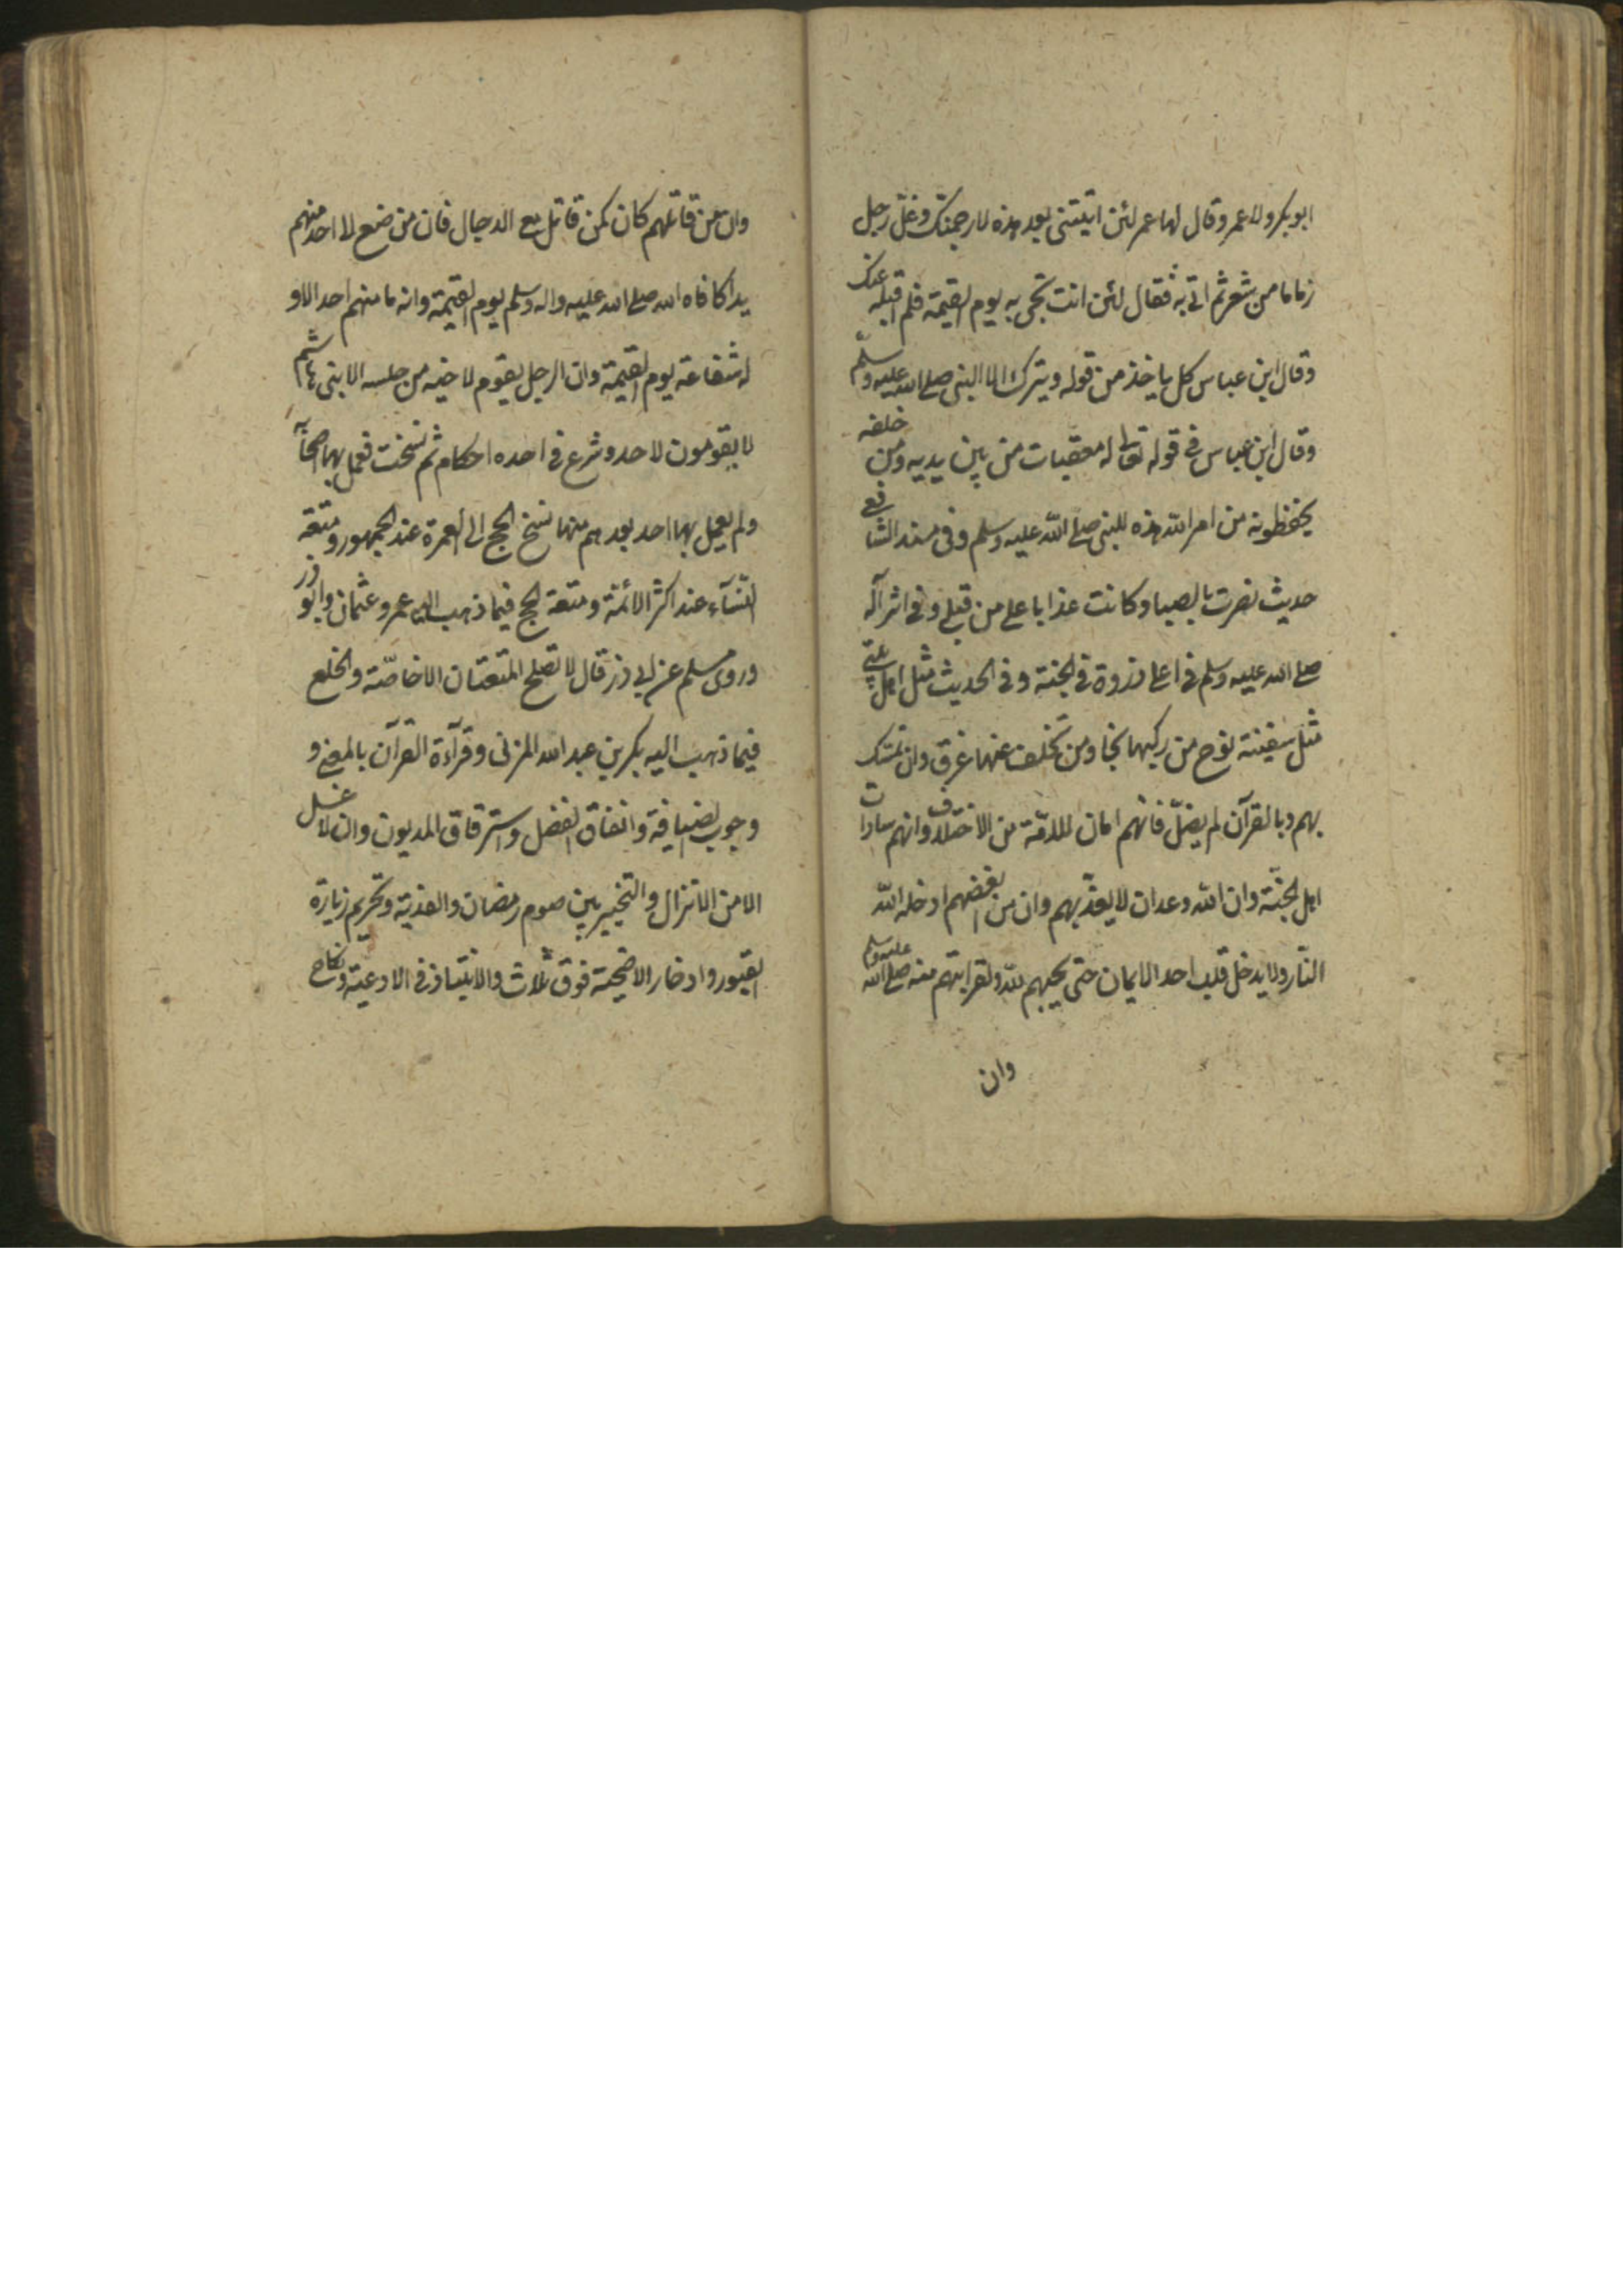 ابو بكر ولا عمر وقال لها عمر لئن اتيتني بعد هذه لارجمنك وغلّ رجل
زماما من شعر ثم اتى به فقال لئن انت تجى به يوم القيمة فلم اقبله عنك
وقال ابن عباس كل ياخذ من قوله ويترك الا النبى صلى الله عليه وسلّم
وقال ابن عباس فى قوله تعالى له معقبات من بين يديه ومن خلفه
يحفظونه من امر الله هذه للنبى صلى الله عليه وسلم وفى مسند الشافعى
حديث نصرت بالصبا وكانت عذابا على من قبلى وفى اثر آله
صلى الله عليه وسلم فى اعلى ذروة فى الجنة وفى الحديث مثل اهل بيتى
مثل سفينة نوح من ركبها نجا ومن تخلف عنها غرق وان تمسّك
بهم وبالقرآن لم يضلّ فانهم امان للامّة من الاختلاف وانهم سادات
اهل الجنّة وان الله وعد ان لا يعذّبهم وان من ابغضهم ادخله الله
النّار ولا يدخل قلب احد الايمان حتى يحبهم لله ولقرابتهم منه صلى الله عليه وسلم
وان
وان من قاتلهم كان كمن قاتل مع الدجال فان من صنع لا احد منهم
يدا كافاه الله صلى الله عليه واله وسلم يوم القيمة وانه ما منهم احد الا و
له شفاعة يوم القيمة وان الرجل يقوم لاخيه من جلسه الا بنى هاشم
لا يقومون لاحد وشرع فى احده احكام ثم نسخت فعمل بها اصحابه
ولم يعمل بها احد بعدهم منها نسخ الحج الى العمرة عند الجمهور ومتعة
النّسآء عند اكثر الائمة ومتعة الحج فيما ذهب اليه عمر وعثمان وابو ذر
وروى مسلم عن ابى ذر قال لا تصلح المتعتان الا خاصّة والخلع
فيما ذهب اليه بكر بن عبد الله المزنى وقرآءة القرآن بالمعنى و
وجوب الضيافة وانفاق الفضل واسترقاق المديون وان لا غسل
الا من الانزال والتخيير بين صوم رمضان والفدية وتحريم زيارة
القبور وادخار الاضحية فوق ثلاث والانتباذ فى الاوعية ونكاح